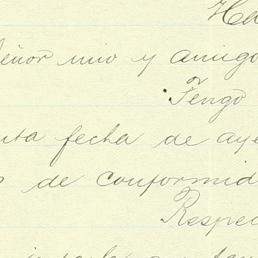 Ha
eñor mio y amigo
Tengo
nta fecha de aye
de conformid
Respec